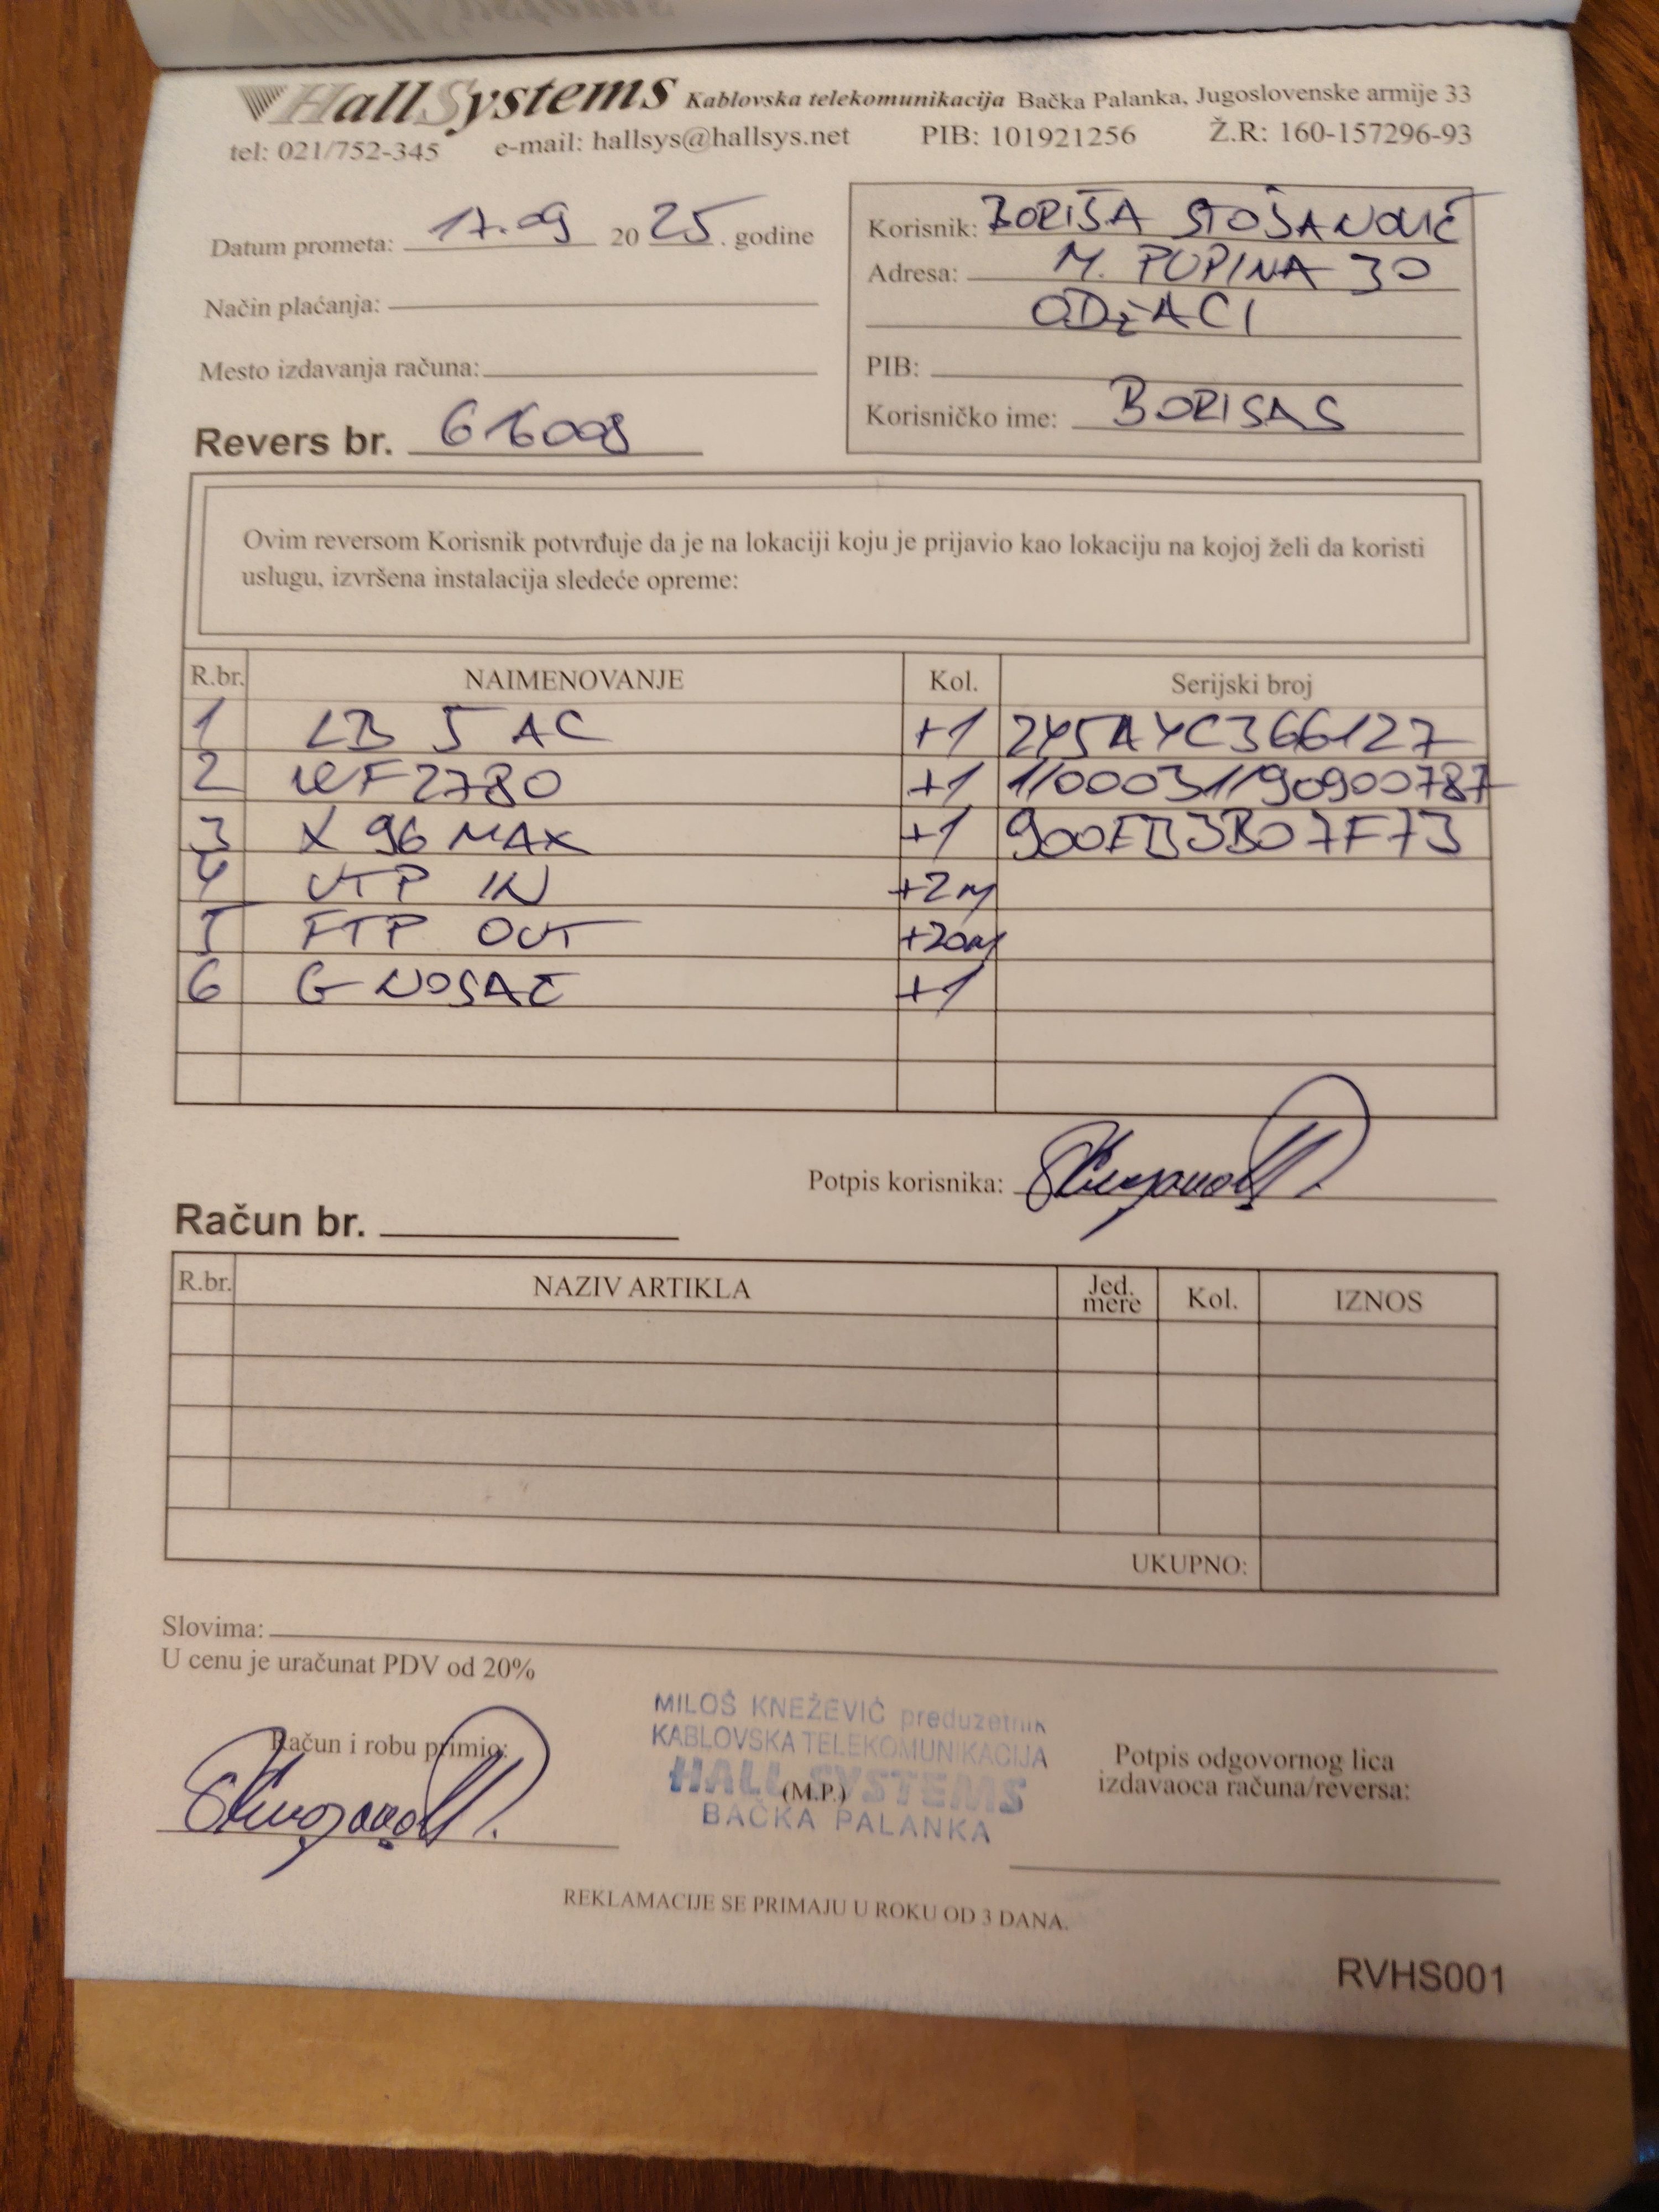 HallSystems Kablovska telekomunikacija Bačka Palanka, Jugoslovenske armije 33
tel: 021/752-345 e-mail: hallsys@hallsys.net PIB: 101921256 Ž.R: 160-157296-93
Datum prometa: 17.09 2025. godine
Način plaćanja:
Mesto izdavanja računa:
Revers br. 616008
Korisnik: BORIŠA STOŠANOVIĆ
Adresa: M. PUPINA 30
ODŽACI
PIB:
Korisničko ime: BORISAS
Ovim reversom Korisnik potvrđuje da je na lokaciji koju je prijavio kao lokaciju na kojoj želi da koristi
uslugu, izvršena instalacija sledeće opreme:
R.br. NAIMENOVANJE Kol. Serijski broj
1 LB 5 AC +1 245AYC366127
2 WF2780 +1 1100031190900787
3 X 96 MAX +1 900EB3B07F73
4 UTP IN +2m
5 FTP OUT +20m
6 G NOSAČ +1
Potpis korisnika:
Račun br.
R.br. NAZIV ARTIKLA Jed. mere Kol. IZNOS
UKUPNO:
Slovima:
U cenu je uračunat PDV od 20%
Račun i robu primio:
MILOŠ KNEŽEVIĆ preduzetnik
KABLOVSKA TELEKOMUNIKACIJA
HALL SYSTEMS
(M.P.)
BAČKA PALANKA
Potpis odgovornog lica
izdavaoca računa/reversa:
REKLAMACIJE SE PRIMAJU U ROKU OD 3 DANA.
RVHS001